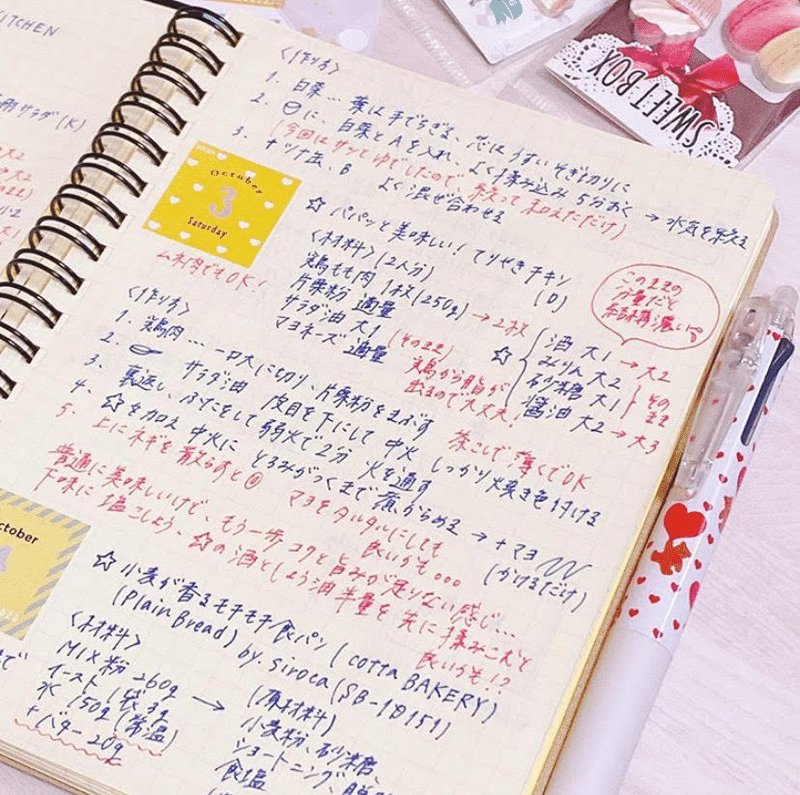 KITCHEN
サラダ(K)
大2
SWEET BOX
〈作り方〉
1. 白菜… 葉は手でちぎる、芯はうすいそぎ切りに
2. に、白菜とAを入れ、よく揉み込み 5分おく → 水気を絞る
(今回はサッとゆでしたので 絞って和えただけ)
3. ツナ缶、B よく混ぜ合わせる
October
3
Saturday
☆ パパッと美味しい! てりやきチキン
(D)
〈材料〉(2人分)
鶏もも肉 1枚(250g) → 2枚
片栗粉 適量
サラダ油 大1 (そのまま)
マヨネーズ 適量
鶏から脂が
出るので大丈夫!
☆
酒 大1 → 大2
みりん 大2
砂糖 大1
そのまま
醤油 大2 → 大3
このままの
分量だと
結構濃い。
ムネ肉でもOK!
〈作り方〉
1. 鶏肉… 一口大に切り、片栗粉をまぶす
茶こしで薄くでOK
2. サラダ油 皮目を下にして 中火 しっかり焼き色付ける
3. 裏返し、ふたをして弱火で2分 火を通す
4. ☆を加え 中火に とろみがつくまで 煮からめる → +マヨ
(かけるだけ)
5. 上にネギを散らすと◎
マヨをタルタルにしても
良いかも。。。
普通に美味しいけど、もう一歩 コクと旨みが足りない感じ…
下味に 塩こしょう、☆の酒としょう油 半量を 先に揉みこむと
良いかも!?
October
☆ 小麦が香るモチモチ食パン (cotta BAKERY)
(Plain Bread) by. siroca (SB-1D151)
〈材料〉
MIX粉 260g
イースト 1袋 3g
水 150g (常温)
+バター 20g
→
(原材料)
小麦粉、砂糖、
ショートニング、
食塩